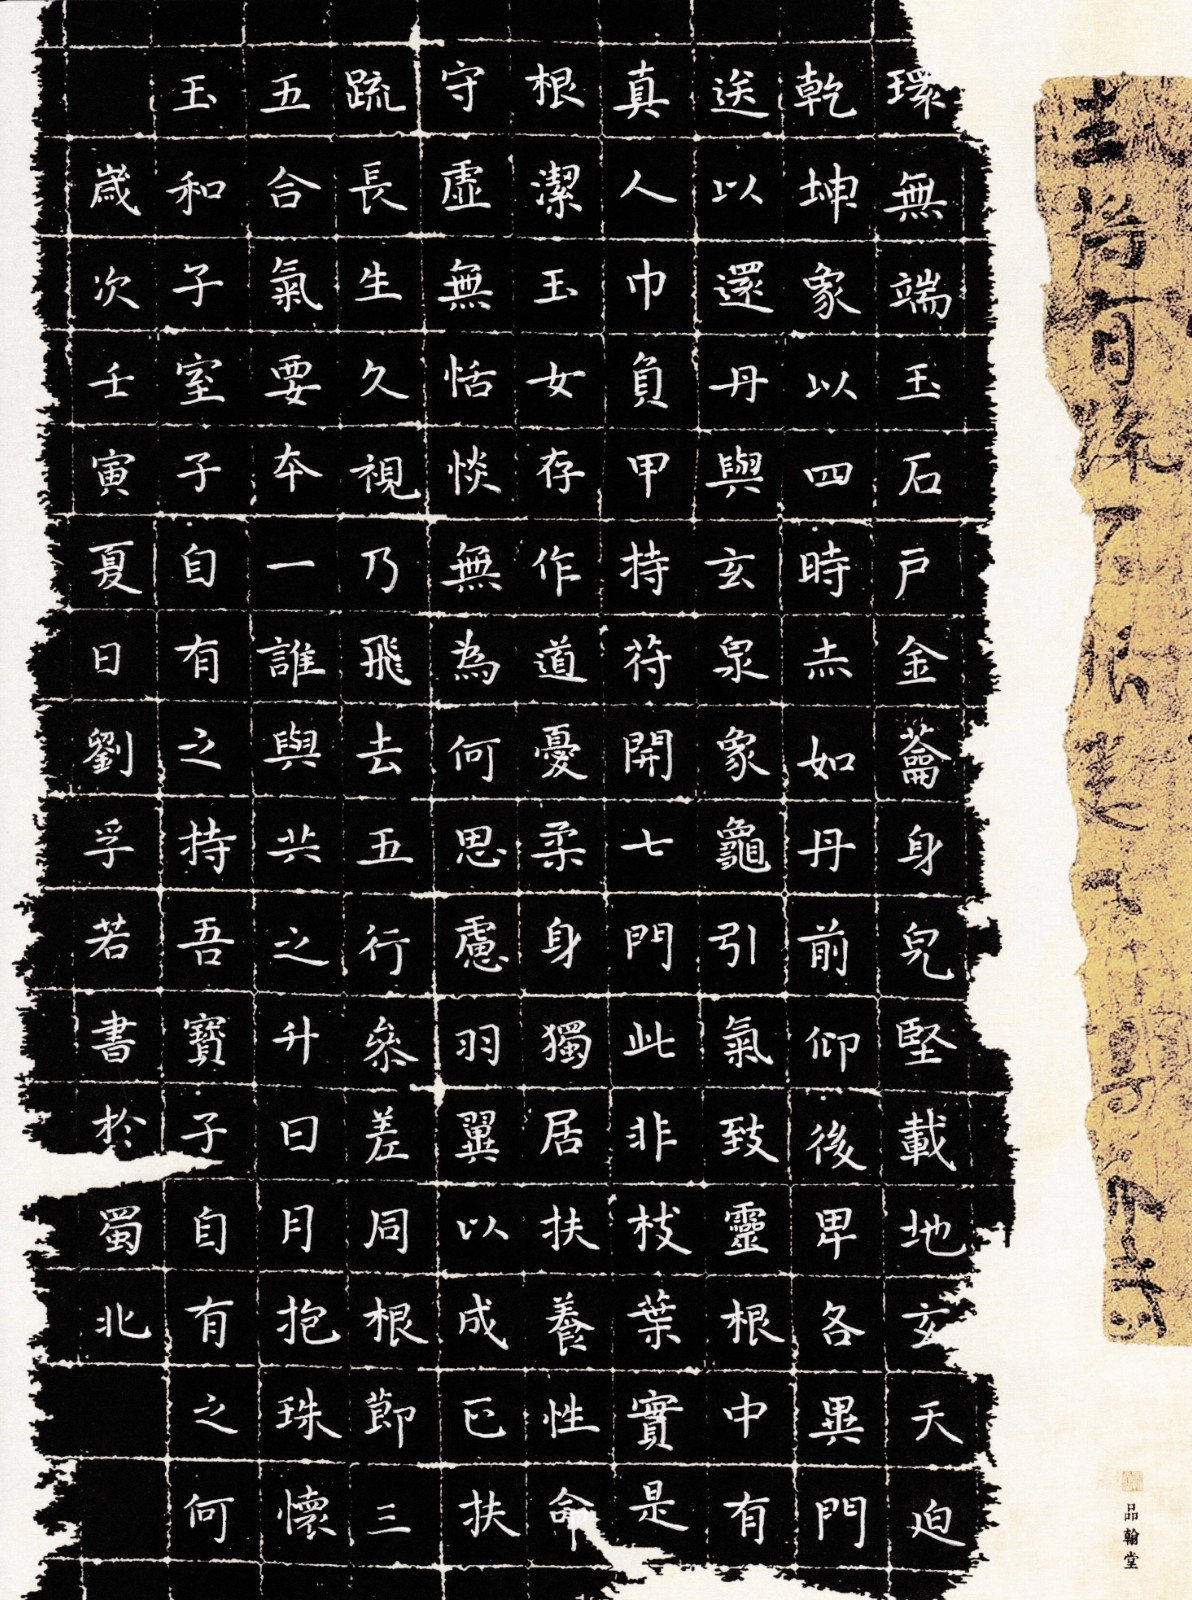 環無端玉石戶金蘥身皃堅載地玄天迫
乾坤象以四時赤如丹前仰後卑各異門
送以還丹與玄泉象龜引氣致靈根中有
真人巾負甲持苻開七門此非枝葉實是
根潔玉女存作道憂柔身獨居扶養性命
守虛無恬惔無為何思慮羽翼以成正扶
疏長生久視乃飛去五行參差同根節三
五合氣要本一誰與共之升日月抱珠懷
玉和子室子自有之持吾寶子自有之何
歲次壬寅夏日劉孚若書於蜀北
品翰堂